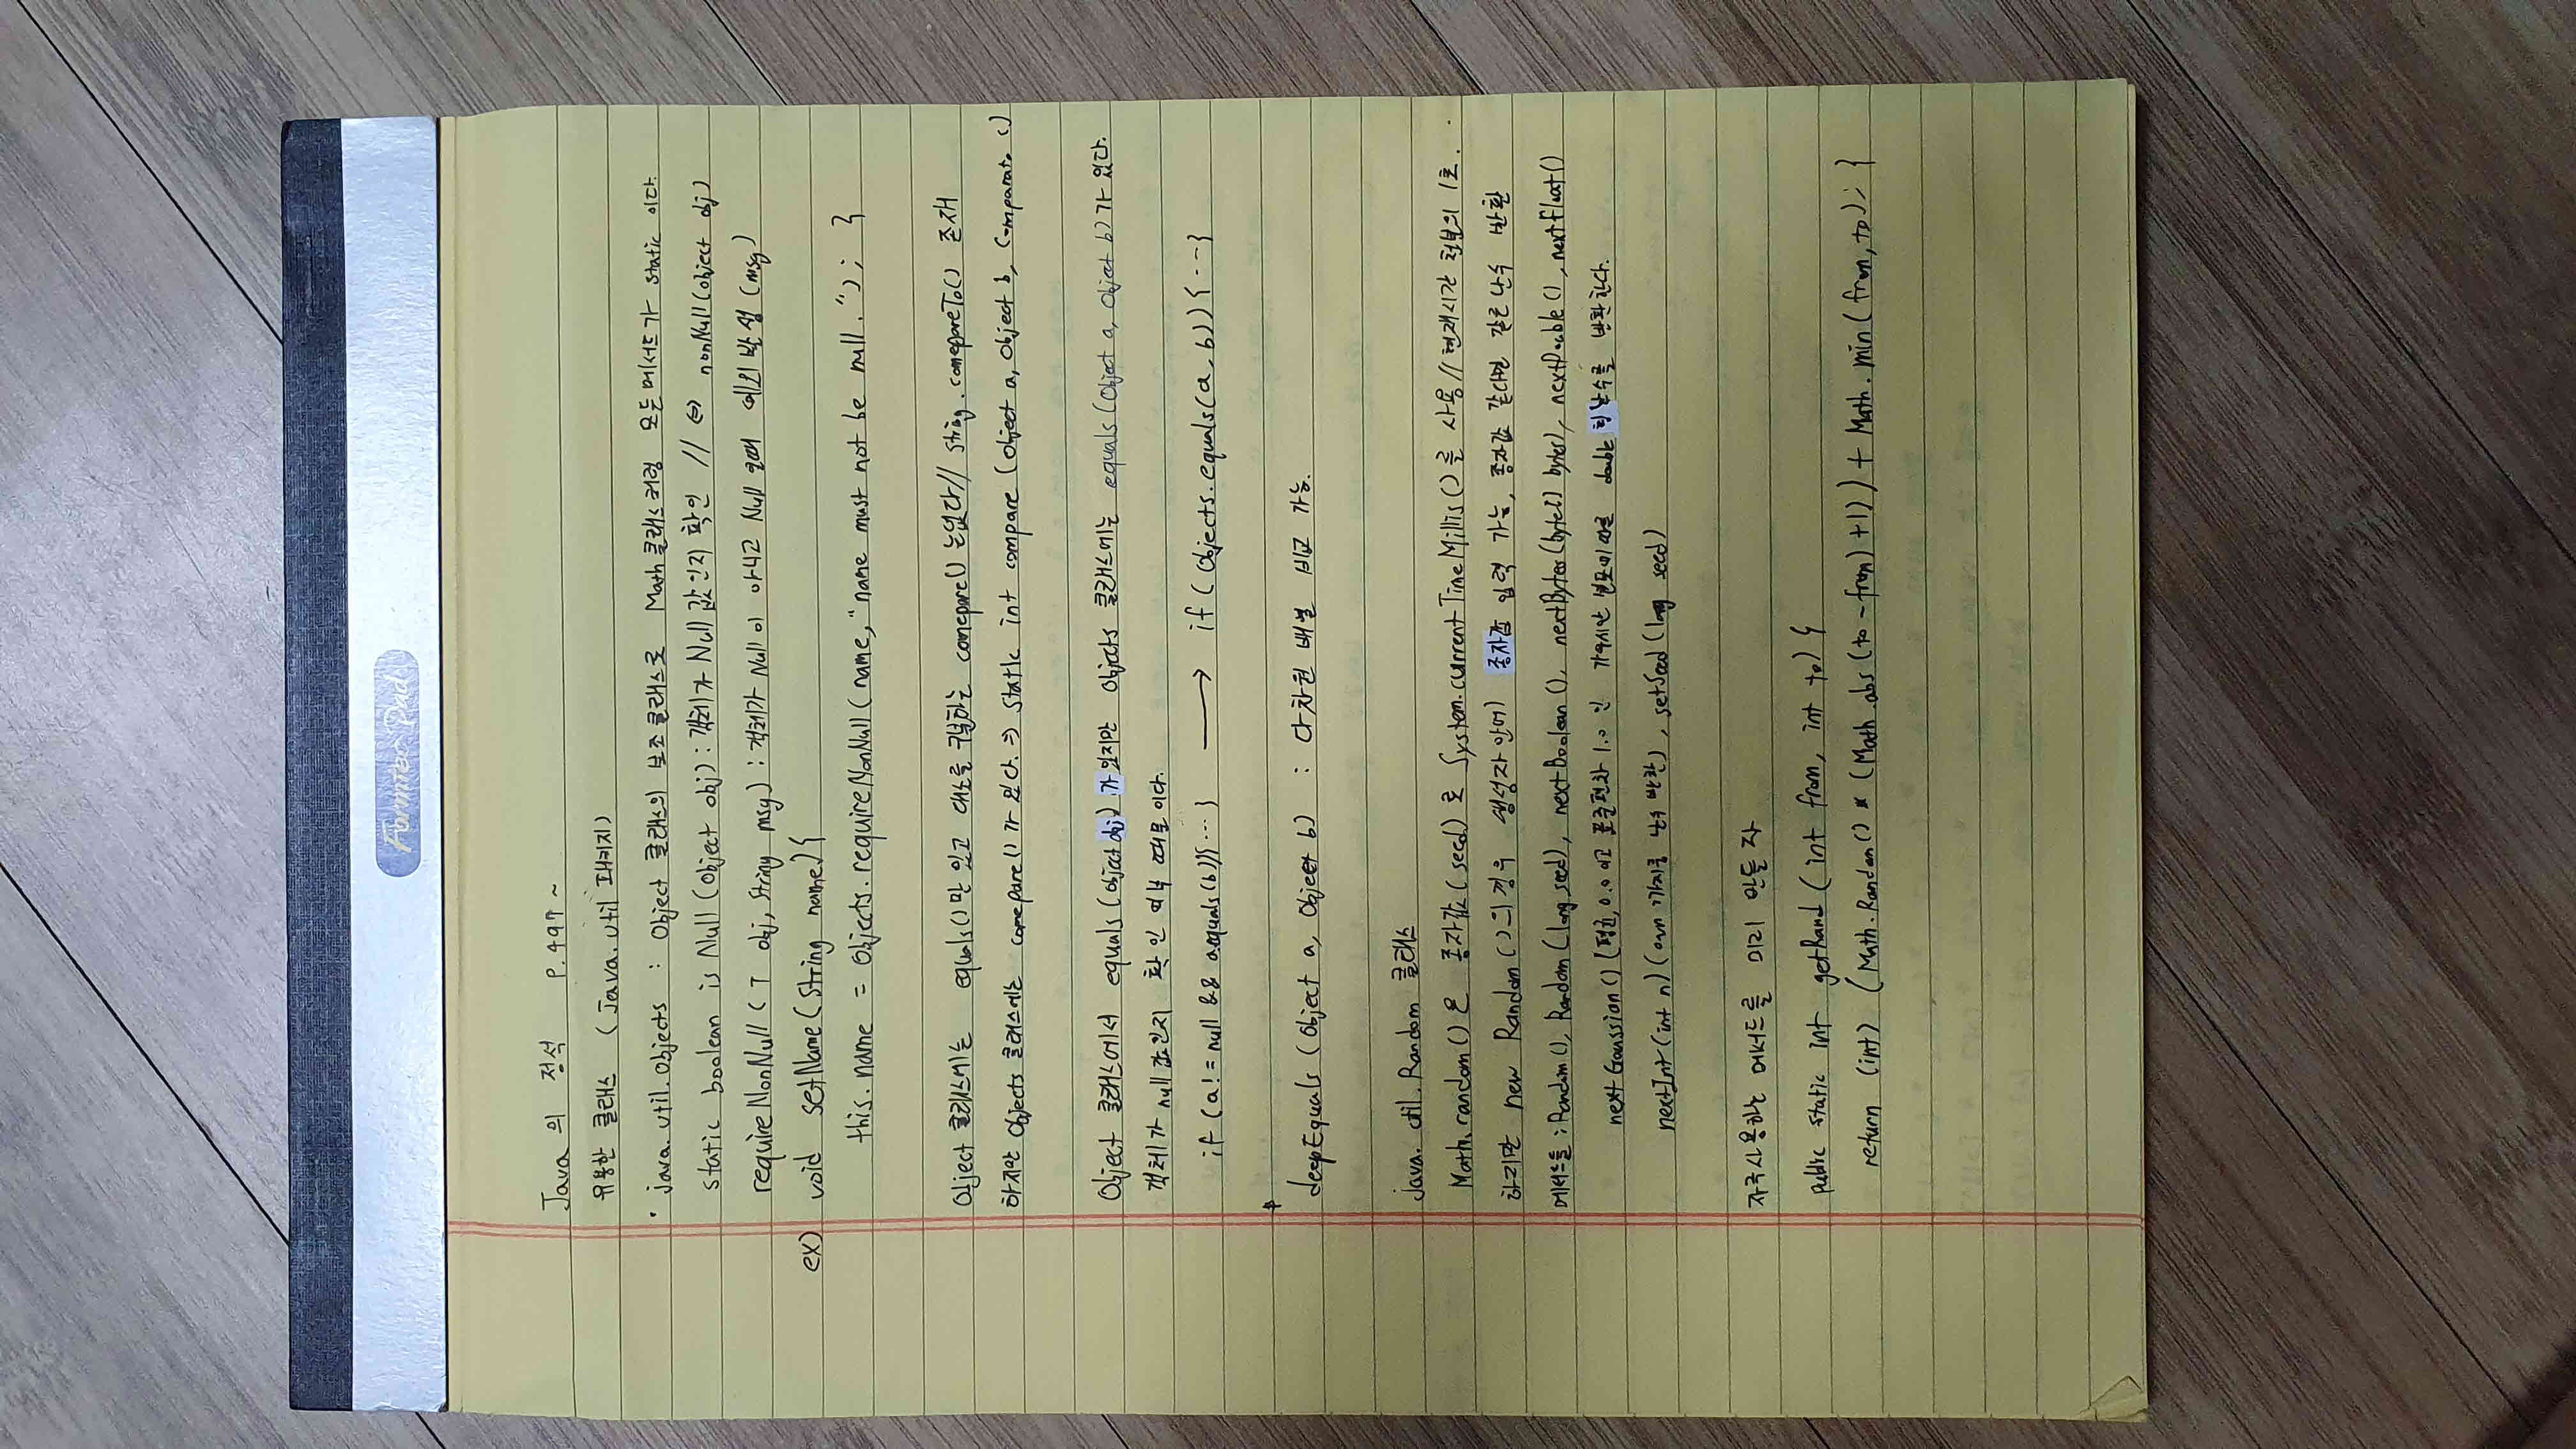 Formtec Pad
Java 의 정석 P.497 ~
유용한 클래스 (Java.util 패키지)
· java.util.objects : Object 클래스의 보조 클래스로 Math클래스처럼 모든 메서드가 static 이다.
static boolean is Null (Object obj) : 객체가 Null 값인지 확인 // ⇔ nonNull(object obj)
requireNonNull ( T obj, String msg) : 객체가 Null이 아니고 Null 일때 예외 발생 (msg)
ex) void setName (String name) {
this.name = Objects.requireNonNull (name, "name must not be null."); }
Object 클래스에는 equals()만 있고 대소를 구분하는 comepare() 는없다 // String.comepareTo() 존재
하지만 Objects 클래스에는 comepare() 가 있다. ⇒ static int compare (Object a, Object b, Comparato c)
Object 클래스에서 equals (object obj) 가 있지만 Objects 클래스에는 equals (Object a, Object b) 가 있다.
객체가 null 값인지 확인 여부 때문이다.
if (a != null && a.equals(b)){ ··· } → if ( Objects.equals(a, b)) { ··· }
deepEquals (Object a, Object b) : 다차원 배열 비교 가능.
java.util.Random 클래스
Math.random() 은 종자값 (seed) 로 System.currentTimeMillis() 를 사용 // 현재시간 천분의 1초.
하지만 new Random ()의 경우 생성자 안에 종자값 입력 가능, 종자값 같다면 같은 난수 반환
메서드들 : Random(), Random (long seed), nextBoolean (), nextBytes (byte[] bytes), nextDouble (), nextFloat()
nextGaussion() (평균 0.0 이고 표준편차 1.0 인 가우시안 분포에 따른 double 형 난수를 반환한다.
nextInt (int n) ( 난수 반환), setSeed (long seed)
자주사용하는 메서드를 미리 만들자
public static int getRand ( int from, int to) {
return (int) (Math.Random() * (Math.abs (to - from) +1)) + Math.min( from, to); }